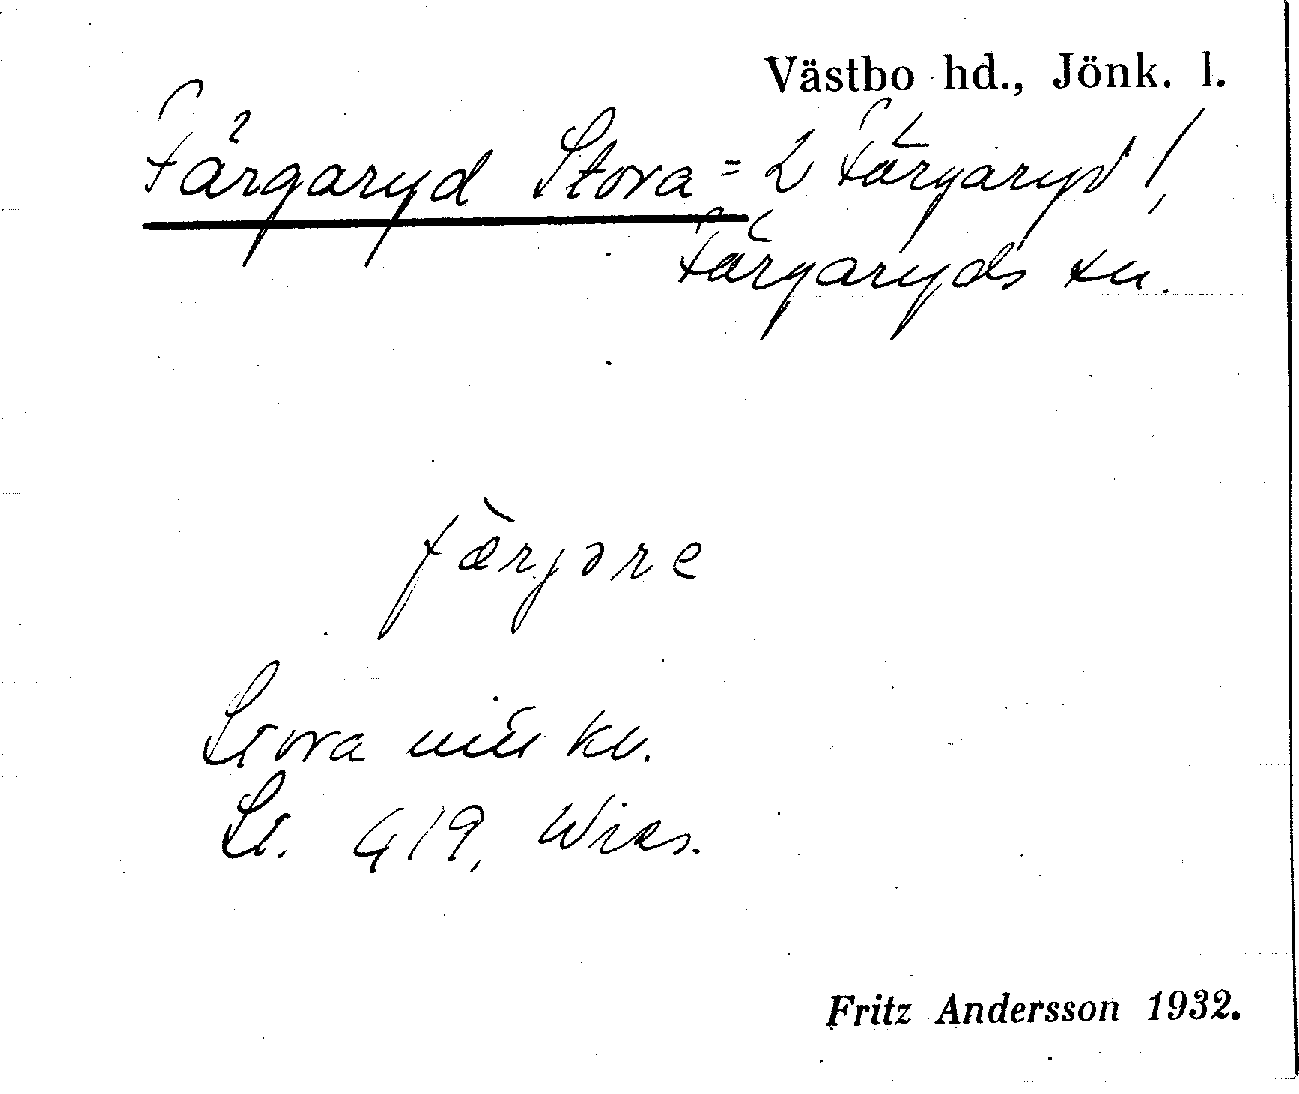 Västbo hd., Jönk. l.
Färgaryd Stora = L Färgaryd!,
Färgaryds sn.
fæ̀rjɘre
Stora
St. 419, Wies.
Fritz Andersson 1932.